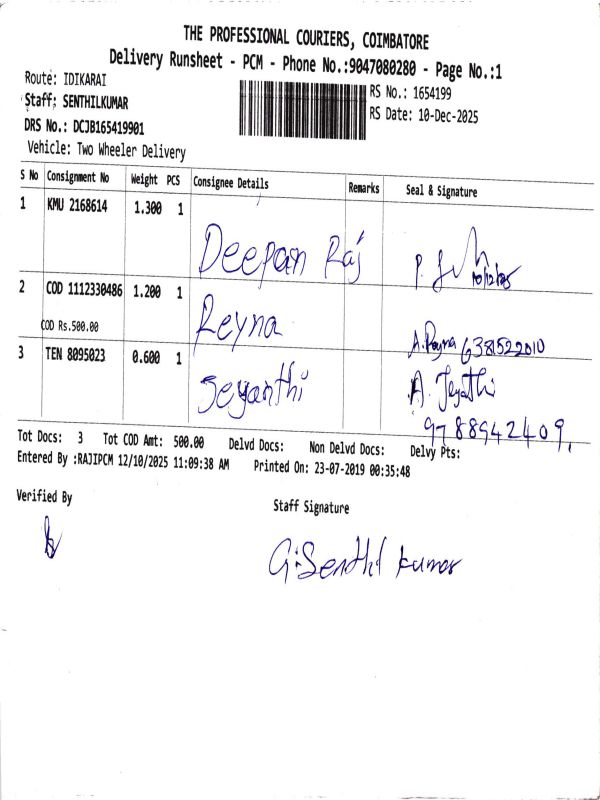 THE PROFESSIONAL COURIERS, COIMBATORE
Delivery Runsheet - PCM - Phone No.:9047080280 - Page No.:1
Route: IDIKARAI
RS No.: 1654199
Staff: SENTHILKUMAR
RS Date: 10-Dec-2025
DRS No.: DCJB165419901
Vehicle: Two Wheeler Delivery
S No Consignment No Weight PCS Consignee Details Remarks Seal & Signature
1 KMU 2168614 1.300 1 Deepan Raj P. 10/12/25
2 COD 1112330486 1.200 1 Reyna A. Reyna 6381522010
COD Rs.500.00
3 TEN 8095023 0.600 1 Jeyanthi A. Jeyathi
9788942409.
Tot Docs: 3 Tot COD Amt: 500.00 Delvd Docs: Non Delvd Docs: Delvy Pts:
Entered By :RAJIPCM 12/10/2025 11:09:38 AM Printed On: 23-07-2019 00:35:48
Verified By
Staff Signature
G. Senthil kumar